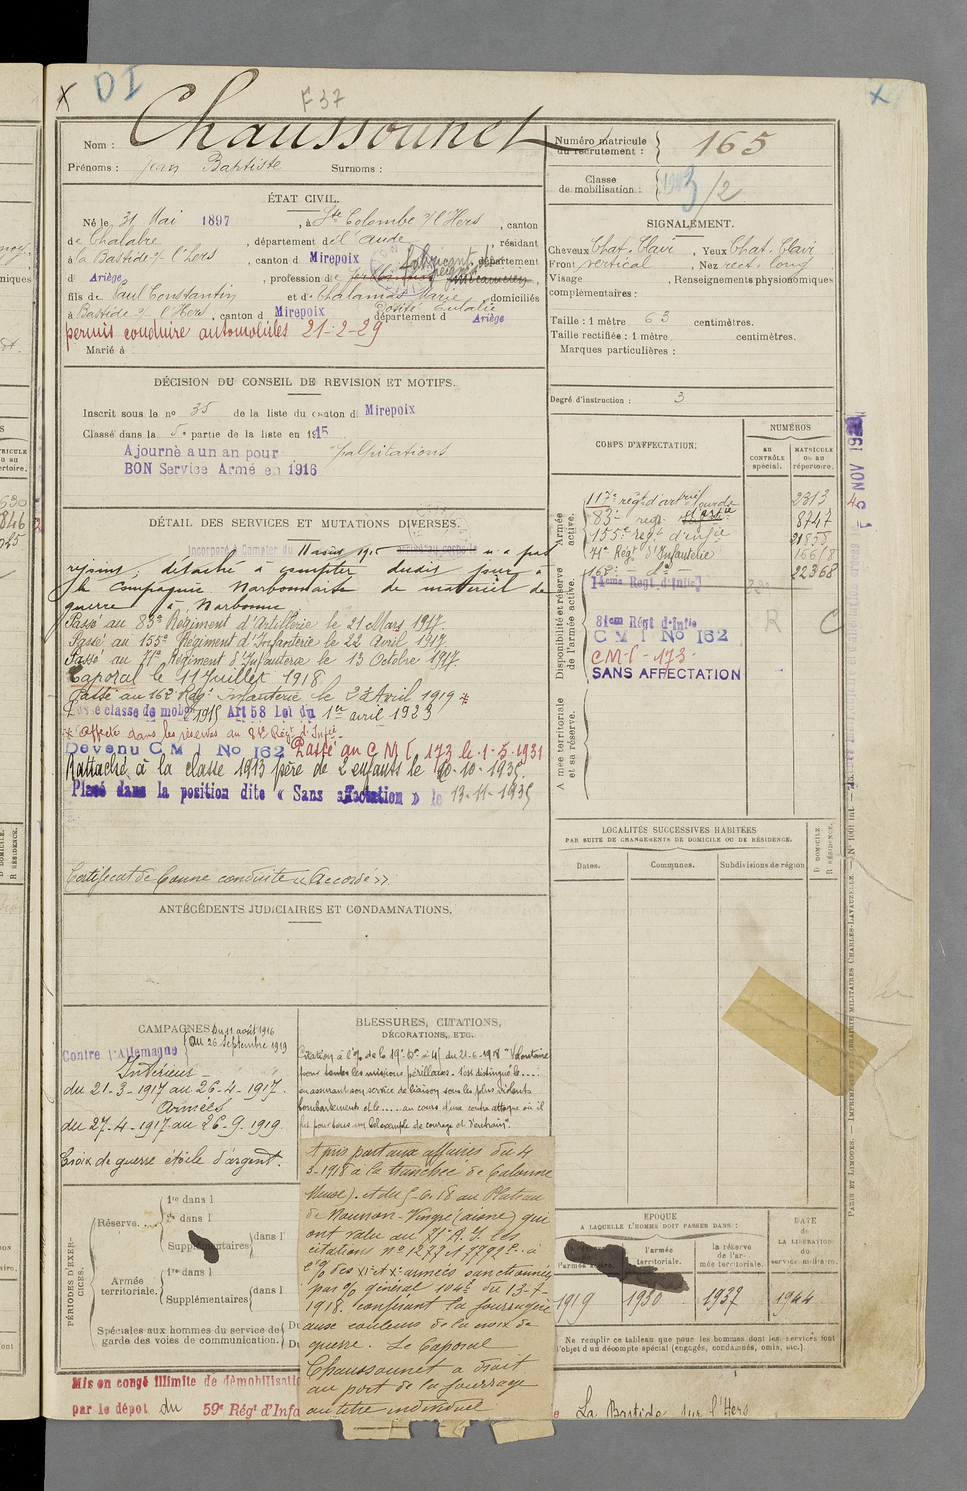 X DI F 37 X
Nom : Chaussounet
Prénoms : Jean Baptiste Surnoms :
Numéro matricule du recrutement : 165
Classe de mobilisation : 3/2
ÉTAT CIVIL.
Né le 31 Mai 1897, à Ste Colombe s/ l'Hers, canton
de Chalabre, département de l'Aude, résidant
à la Bastide s/ l'Hers, canton d Mirepoix, département
d Ariège, profession de fabricant peignes
fils de Paul Constantin et de Chalamas Marie domiciliés
à Bastide s/ l'Hers, canton d Mirepoix département d Ariège
permis conduire automobiles 21-2-29
Marié à
SIGNALEMENT.
Cheveux Chat. Clair Yeux Chat. Clair
Front vertical, Nez rect. long
Visage, Renseignements physionomiques
complémentaires :
Taille : 1 mètre 63 centimètres.
Taille rectifiée : 1 mètre centimètres.
Marques particulières :
Degré d'instruction : 3
DÉCISION DU CONSEIL DE REVISION ET MOTIFS.
Inscrit sous le no 35 de la liste du canton d Mirepoix
Classé dans la 5e partie de la liste en 1915
Ajourné a un an pour palpitations
BON Service Armé en 1916
DÉTAIL DES SERVICES ET MUTATIONS DIVERSES.
Incorporé à Compter du 11 août 1916 n'a pas
rejoint, détaché à compter dudit jour à
la Compagnie Narbonnaise de matériel de
guerre à Narbonne
Passé au 83e Régiment d'Artillerie le 21 Mars 1917.
Passé au 155e Régiment d'Infanterie le 22 Avril 1917
Passé au 71e Régiment d'Infanterie le 13 Octobre 1917
Caporal le 11 Juillet 1918
Passé au 162e Rég. Infanterie le 22 Avril 1919 *
classe de mob 1915 Art 58 Loi du 1er avril 1923
* Affecté dans les réserves au 81e Régt d'Infie
Devenu C M I No 162 Passé au C M I 173 le 1-5-1931
Rattaché à la classe 1913 père de 2 enfants le 20-10-1935.
Placé dans la position dite « Sans affectation » le 13-11-1935
Certificat de Bonne conduite « Accordé ».
CORPS D'AFFECTATION.
NUMÉROS
AU CONTRÔLE spécial.
MATRICULE OU AU répertoire.
Armée active.
117e régt d'art lourde 2313
83e regt 8747
155e régt d'infie 21858
71e Régt d'Infanterie 16618
162e do 22368
Disponibilité et réserve de l'armée active.
14eme Regt d'Infie
R C
81em Régt d'Infie
C M I No 162
C M I - 173 -
SANS AFFECTATION
Armée territoriale et sa réserve.
LOCALITÉS SUCCESSIVES HABITÉES
PAR SUITE DE CHANGEMENTS DE DOMICILE OU DE RÉSIDENCE.
Dates. Communes. Subdivisions de région
D DOMICILE.
R RÉSIDENCE.
ANTÉCÉDENTS JUDICIAIRES ET CONDAMNATIONS.
CAMPAGNES Du 11 août 1916
au 26 Septembre 1919
Contre l'Allemagne
Intérieur
du 21-3-1917 au 26-4-1917.
Armées
du 27-4-1917 au 26-9-1919.
Croix de guerre étoile d'argent.
BLESSURES, CITATIONS,
DÉCORATIONS, ETC.
Citation à l'o/ de la 19e Don no 41 du 21-6-1918 "Volontaire
pour toutes les missions périlleuses. S'est distingué le.....
en assurant son service de liaison sous les plus violents
bombardements et le..... au cours d'une contre attaque où il
fut pour tous un bel exemple de courage et d'entrain".
A pris part aux affaires du 4
3-1918 à la tranchée de Calonne
Meuse). et du 5-6-18 au Plateau
de Nouvron-Vingré (aisne) qui
ont valu au 71e R.I. les
citations
l'o/ des XIe et Xe armées sanctionnées
par o/ général 104e du 13-7-
1918. conférant la fourragère
aux couleurs de la croix de
guerre. Le Caporal
Chaussounet a droit
au port de la fourragère
au titre individuel
PÉRIODES D'EXERCICES.
Réserve....
1re dans l
2e dans l
Supplémentaires dans l
Armée territoriale.
1re dans l
Supplémentaires dans l
Spéciales aux hommes du service de
garde des voies de communication.
ÉPOQUE
A LAQUELLE L'HOMME DOIT PASSER DANS :
l'armée territoriale.
la réserve de l'armée territoriale.
DATE de LA LIBÉRATION du service militaire.
1919 1930 1937 1944
Ne remplir ce tableau que pour les hommes dont les services font
l'objet d'un décompte spécial (engagés, condamnés, omis, etc.).
Mis en congé illimité de démobilisatio
par le dépot du 59e Régt d'Infa
La Bastide sur l'Hers
PARIS ET LIMOGES. — IMPRIMERIE ET LIBRAIRIE MILITAIRES CHARLES-LAVAUZELLE.